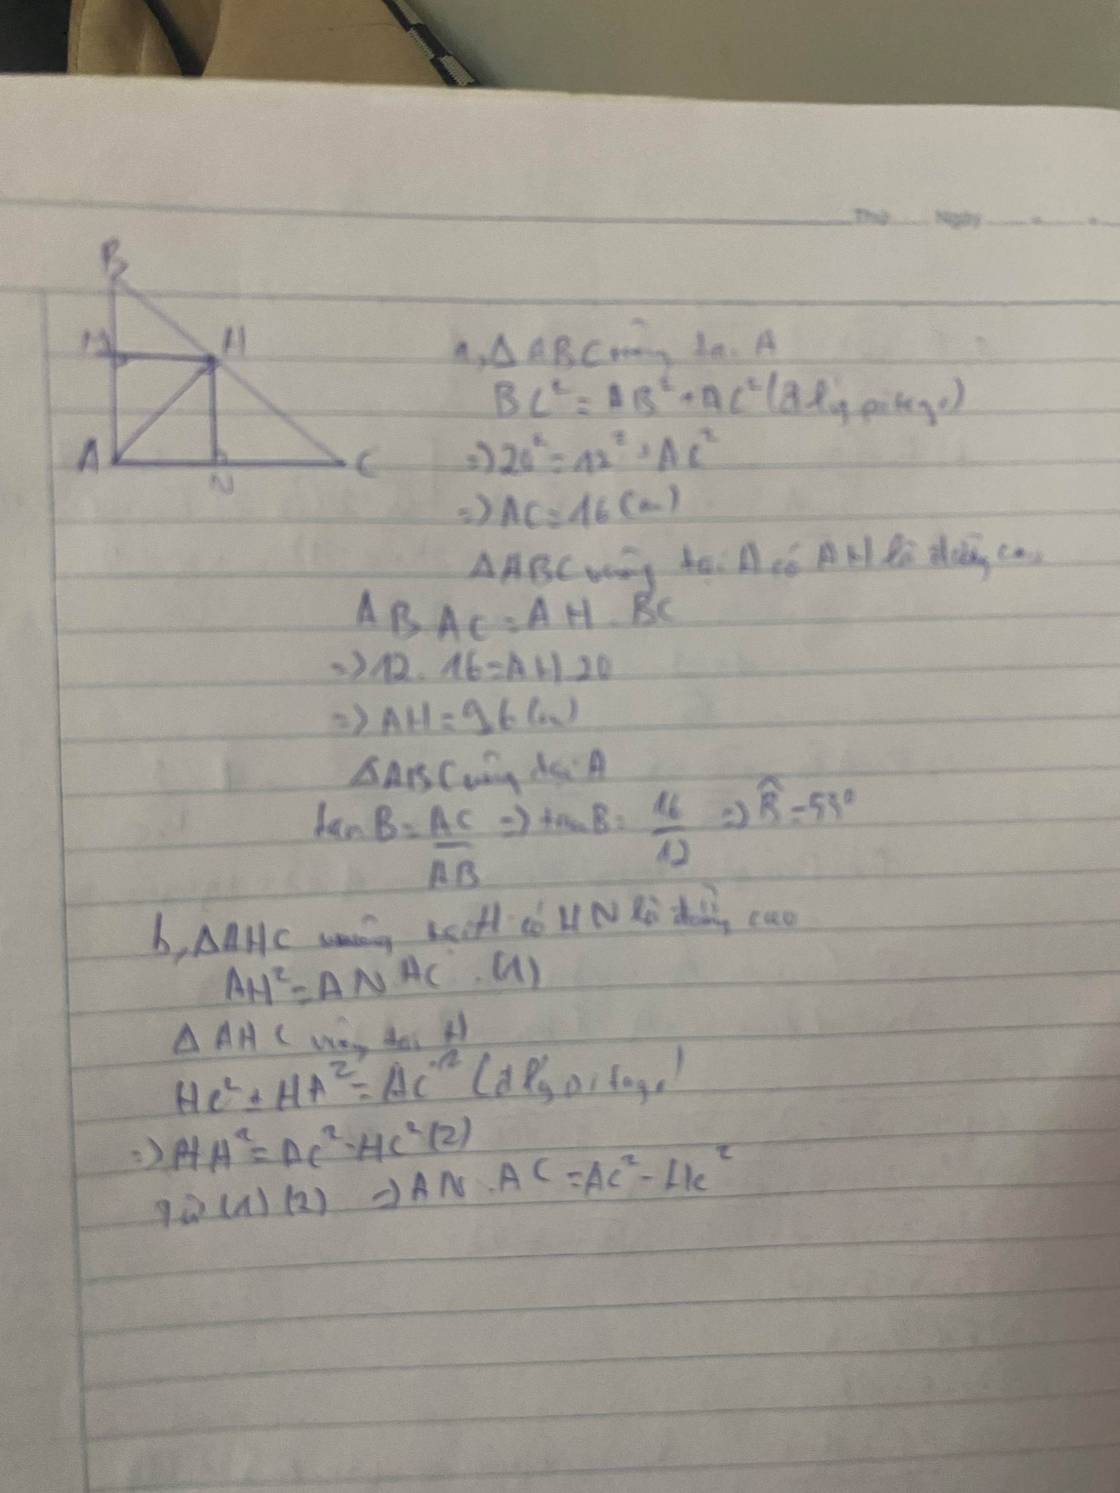 Thứ Ngày
B
M H
A N C
a, Δ ABC vuông tại A
BC² = AB² + AC² (đ lý pitago)
=> 20² = 12² + AC²
=> AC = 16 (cm)
Δ ABC vuông tại A có AH là đường cao
AB AC = AH . BC
=> 12 . 16 = AH 20
=> AH = 9,6 (cm)
Δ ABC vuông tại A
tan B = AC/AB => tan B = 16/12 => B̂ = 53°
b, Δ AHC vuông tại H có HN là đường cao
AH² = AN AC . (1)
Δ AHC vuông tại H
HC² + HA² = AC² (đ lý pitago)
=> AH² = AC² - HC² (2)
Từ (1) (2) => AN . AC = AC² - HC²